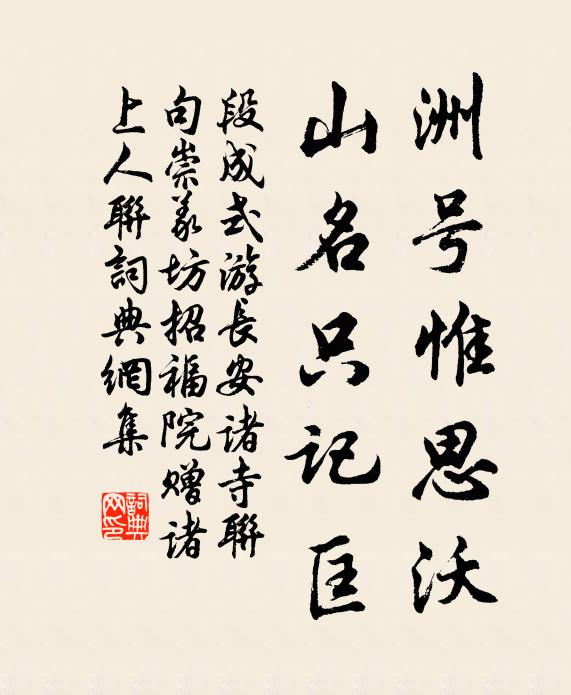 洲号惟思沃
山名只记匡
段成式游長安诸寺聯
句崇义坊招福院赠诸
上人聯詞典網集
詞典
网印